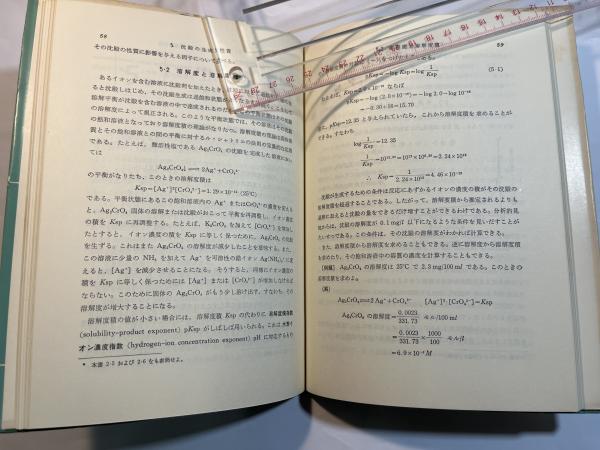 58
5. 沈殿の生成と性質
その沈殿の性質に影響を与える因子について述べる。
5・2 溶解度と溶解度
あるイオンを含む溶液に沈殿剤を加えたとき，
ると沈殿しはじめ，その沈殿生成は過飽和状態が
溶解平衡が沈殿を含む溶液の中で達成されるの
の溶解度によって規正される。このような平衡状態では，その溶液はその沈殿
の飽和溶液となっており溶解度積の理論がなりたつ。溶解度積の理論は固体物
質とその飽和溶液との間の平衡に対するル・シャトリエの法則の定量的な応用
である。たとえば，難溶性塩である Ag₂CrO₄ の沈殿を水溶液した溶液におい
ては
Ag₂CrO₄↓ ⇌ 2Ag⁺+CrO₄²⁻
の平衡がなりたち，このときの溶解度積は
Ksp=[Ag⁺]²[CrO₄²⁻]=1.29×10⁻¹² (25℃)
である。平衡状態にあるこの飽和溶液内の Ag⁺ または CrO₄²⁻ の濃度を変える
と，Ag₂CrO₄ 固体の溶解または沈殿がおこって平衡を再調整し，イオン濃度
の積を Ksp に再調整する。たとえば，K₂CrO₄ を加えて [CrO₄²⁻] を増加し
たとすると，イオン濃度の積を Ksp に等しく保つために，Ag₂CrO₄ の沈殿
を生ずる。これはまた Ag₂CrO₄ の溶解度が減少したことを意味する。また，
この溶液に少量の NH₃ を加えて Ag⁺ を可溶性の銀イオン Ag(NH₃)₂⁺ に変
えると，[Ag⁺] を減少させることになる。そうすると，同様にイオン濃度の
積を Ksp に等しく保つためには [Ag⁺] または [CrO₄²⁻] が増加しなければ
ならない。このために固体の Ag₂CrO₄ がもう少し溶け出す，すなわち，その
溶解度が増大することになる。
溶解度積の値が小さい場合には，溶解度積 Ksp の代わりに 溶解度積指数
(solubility-product exponent) pKsp がしばしば用いられる。これは 水素イ
オン濃度指数 (hydrogen-ion concentration exponent) pH に対応するもの
* 本書 2・5 および 2・6 なども参照せよ。
59
pKsp=−log Ksp=log 1/Ksp
(5・1)
たとえば，Ksp=2.0×10⁻¹⁶ ならば
pKsp=−log (2.0×10⁻¹⁶)=−log 2.0−log 10⁻¹⁶
=−0.30+16=15.70
また，pKsp=12.35 と与えられていたら，これから溶解度積を求めることが
できる。すなわち
log 1/Ksp=12.35
1/Ksp=10¹²·³⁵=10¹²×10⁰·³⁵=2.24×10¹²
∴ Ksp=1/2.24×10¹²=4.46×10⁻¹³
沈殿が生成するための条件は反応にあずかるイオンの濃度の積がその沈殿の
溶解度積を超過することである。したがって，溶解度積から推定されるよりも
過剰に加えると沈殿の量をできるだけ増すことができるわけである。分析的見
地からは，沈殿の溶解度が 0.1 mg/l 以下になるような条件を見いだすことが
たいせつである。この条件は，その沈殿の溶解度がわかれば計算できる。
また，溶解度積から溶解度を求めることもできる。逆に溶解度から溶解度積
を求めたり，その飽和溶液中の溶質の濃度を計算することもできる。
［例題］ Ag₂CrO₄ の溶解度は 25℃ で 2.3 mg/100 ml である。このときの
溶解度積を求めよ。
［解］
Ag₂CrO₄⇌2 Ag⁺+CrO₄²⁻ [Ag⁺]²·[CrO₄²⁻]=Ksp
Ag₂CrO₄ の溶解度=0.0023/331.73 モル/100 ml
=0.0023/331.73×1000/100 モル/l
=6.9×10⁻⁵ M